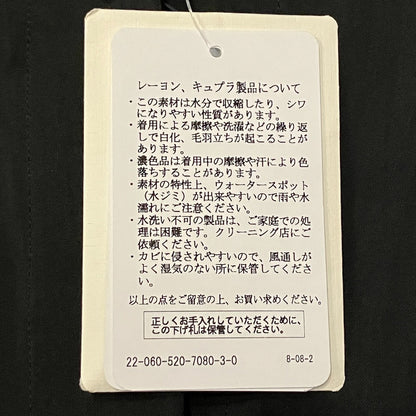 レーヨン、キュプラ製品について
・この素材は水分で収縮したり、シワ
になりやすい性質があります。
・着用による摩擦や洗濯などの繰り返
しで白化、毛羽立ちが起こることが
あります。
・濃色品は着用中の摩擦や汗により色
落ちすることがあります。
・素材の特性上、ウォータースポット
（水ジミ）が出来やすいので雨や水
濡れにご注意ください。
・水洗い不可の製品は、ご家庭での処
理は困難です。クリーニング店にご
依頼ください。
・カビに侵されやすいので、風通しが
よく湿気のない所に保管してくださ
い。
以上の点をご留意の上、お買い求めください。
正しくお手入れしていただくために、
この下げ札は保管してください。
22-060-520-7080-3-0 8-08-2